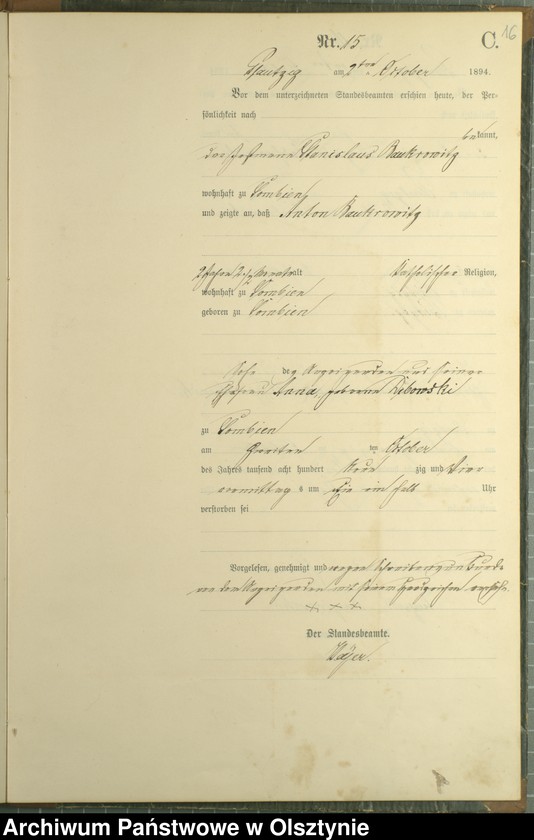 Nr. 15
C.
16
am 2ten October 1894.
Vor dem unterzeichneten Standesbeamten erschien heute, der Per-
sönlichkeit nach
bekannt,
Stanislaus Baukrowitz
wohnhaft zu Tombien,
und zeigte an, daß Anton Baukrowitz
2 Jahre 2 1/2 Monate alt katholischer Religion,
wohnhaft zu Tombien
geboren zu Tombien
Sohn des Anzeigenden und seiner
Ehefrau Anna geborene Ribowski
zu Tombien
am zweiten ten October
des Jahres tausend acht hundert neun zig und vier
vormittags um ein halb Uhr
verstorben sei
Vorgelesen, genehmigt und wegen Schreibensunkunde
von dem Anzeigenden mit seinem Handzeichen versehen.
x x x
Der Standesbeamte.
Archiwum Państwowe w Olsztynie